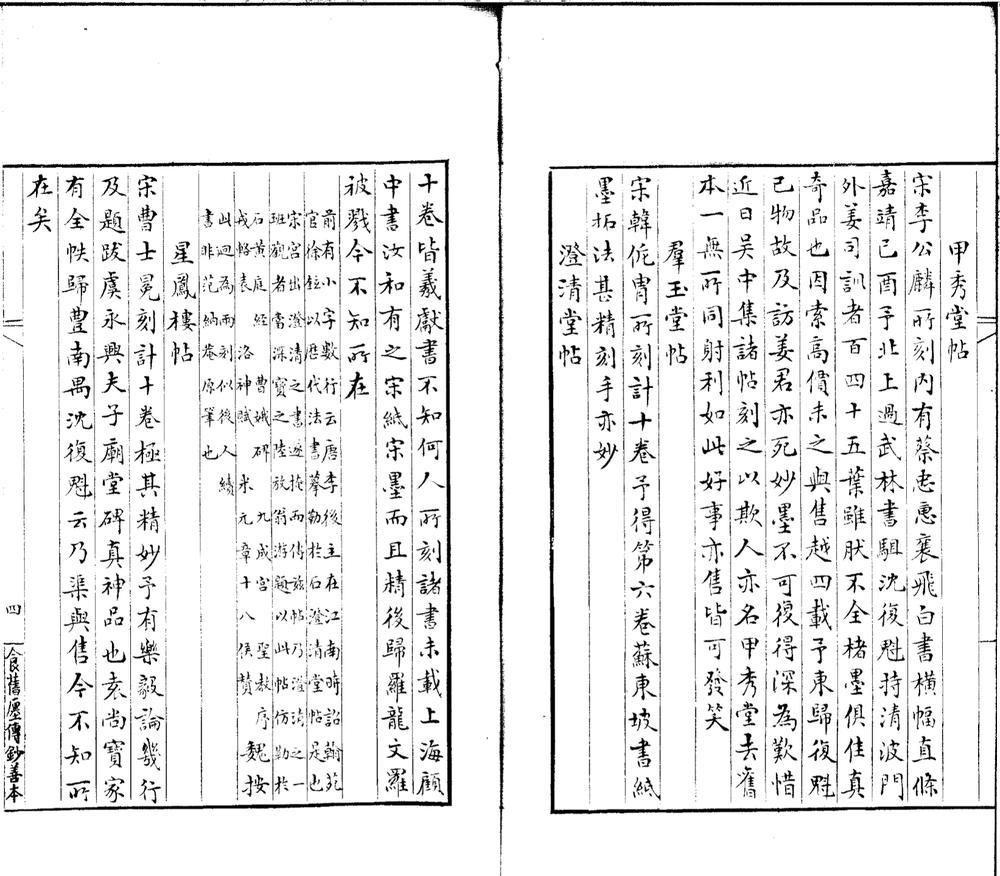 甲秀堂帖
宋李公麟所刻内有蔡忠惠襄飛白書橫幅直條
嘉靖己酉予北上過武林書駔沈復魁持清波門
外姜司訓者百四十五葉雖肰不全楮墨俱佳真
奇品也因索高價未之與售越四載予東歸復魁
已物故及訪姜君亦死妙墨不可復得深為歎惜
近日吴中集諸帖刻之以欺人亦名甲秀堂去舊
本一無所同射利如此好事亦售皆可發笑
羣玉堂帖
宋韓侂冑所刻計十卷予得第六卷蘇東坡書紙
墨拓法甚精刻手亦妙
澄清堂帖
十卷皆羲獻書不知何人所刻諸書未載上海顧
中書汝和有之宋紙宋墨而且精後歸羅龍文羅
被戮今不知所在
前有小字數行云唐李後主在江南時詔翰苑
官徐鉉以歷代法書摹勒於石澄清堂帖是也
宋宮出澄清之書遊掖而傳兹帖乃澄清之一
班觀者當深寶之陸放翁游題以此帖仿勒於
石黄庭經 曹娥碑 九成宫 聖教序 魏按
戎輅表 洛神賦 米元章十八侯贊
此迴為兩刻似後人續
書非范納菴原筆也
星鳳樓帖
宋曹士冕刻計十卷極其精妙予有樂毅論幾行
及題跋虞永興夫子廟堂碑真神品也袁尚寶家
有全帙歸豊南禺沈復魁云乃渠與售今不知所
在矣
四
食舊廛傳鈔善本